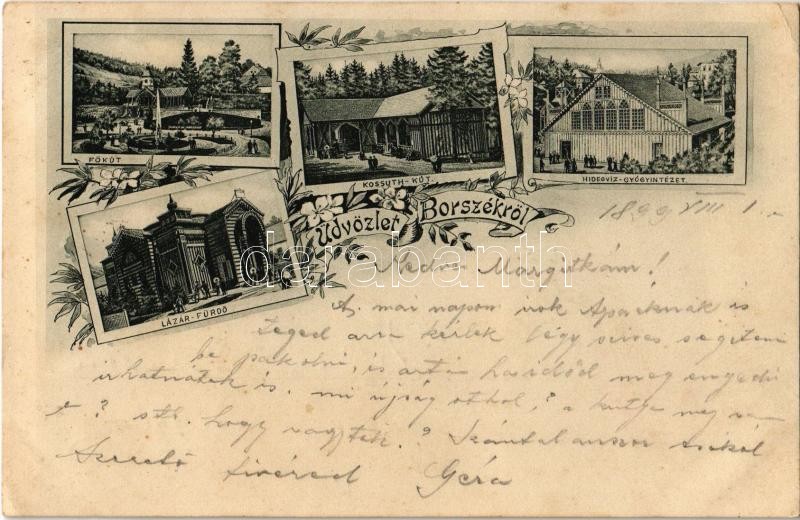 FŐKÚT
KOSSUTH-KÚT.
HIDEGVÍZ-GYÓGYINTÉZET.
LÁZÁR-FÜRDŐ
Üdvözlet Borszékről
1899 VIII 1.
Kedves Margitkám!
A mai napon irok Apáéknak is
téged arra kérlek légy szives segiteni
be pakolni, is
irhatnátok is. mi újság otthol, a kutya meg van
e? stb. hogy vagytok? Számtalanszor csókol
Szerető fivéred Géza
darabanth